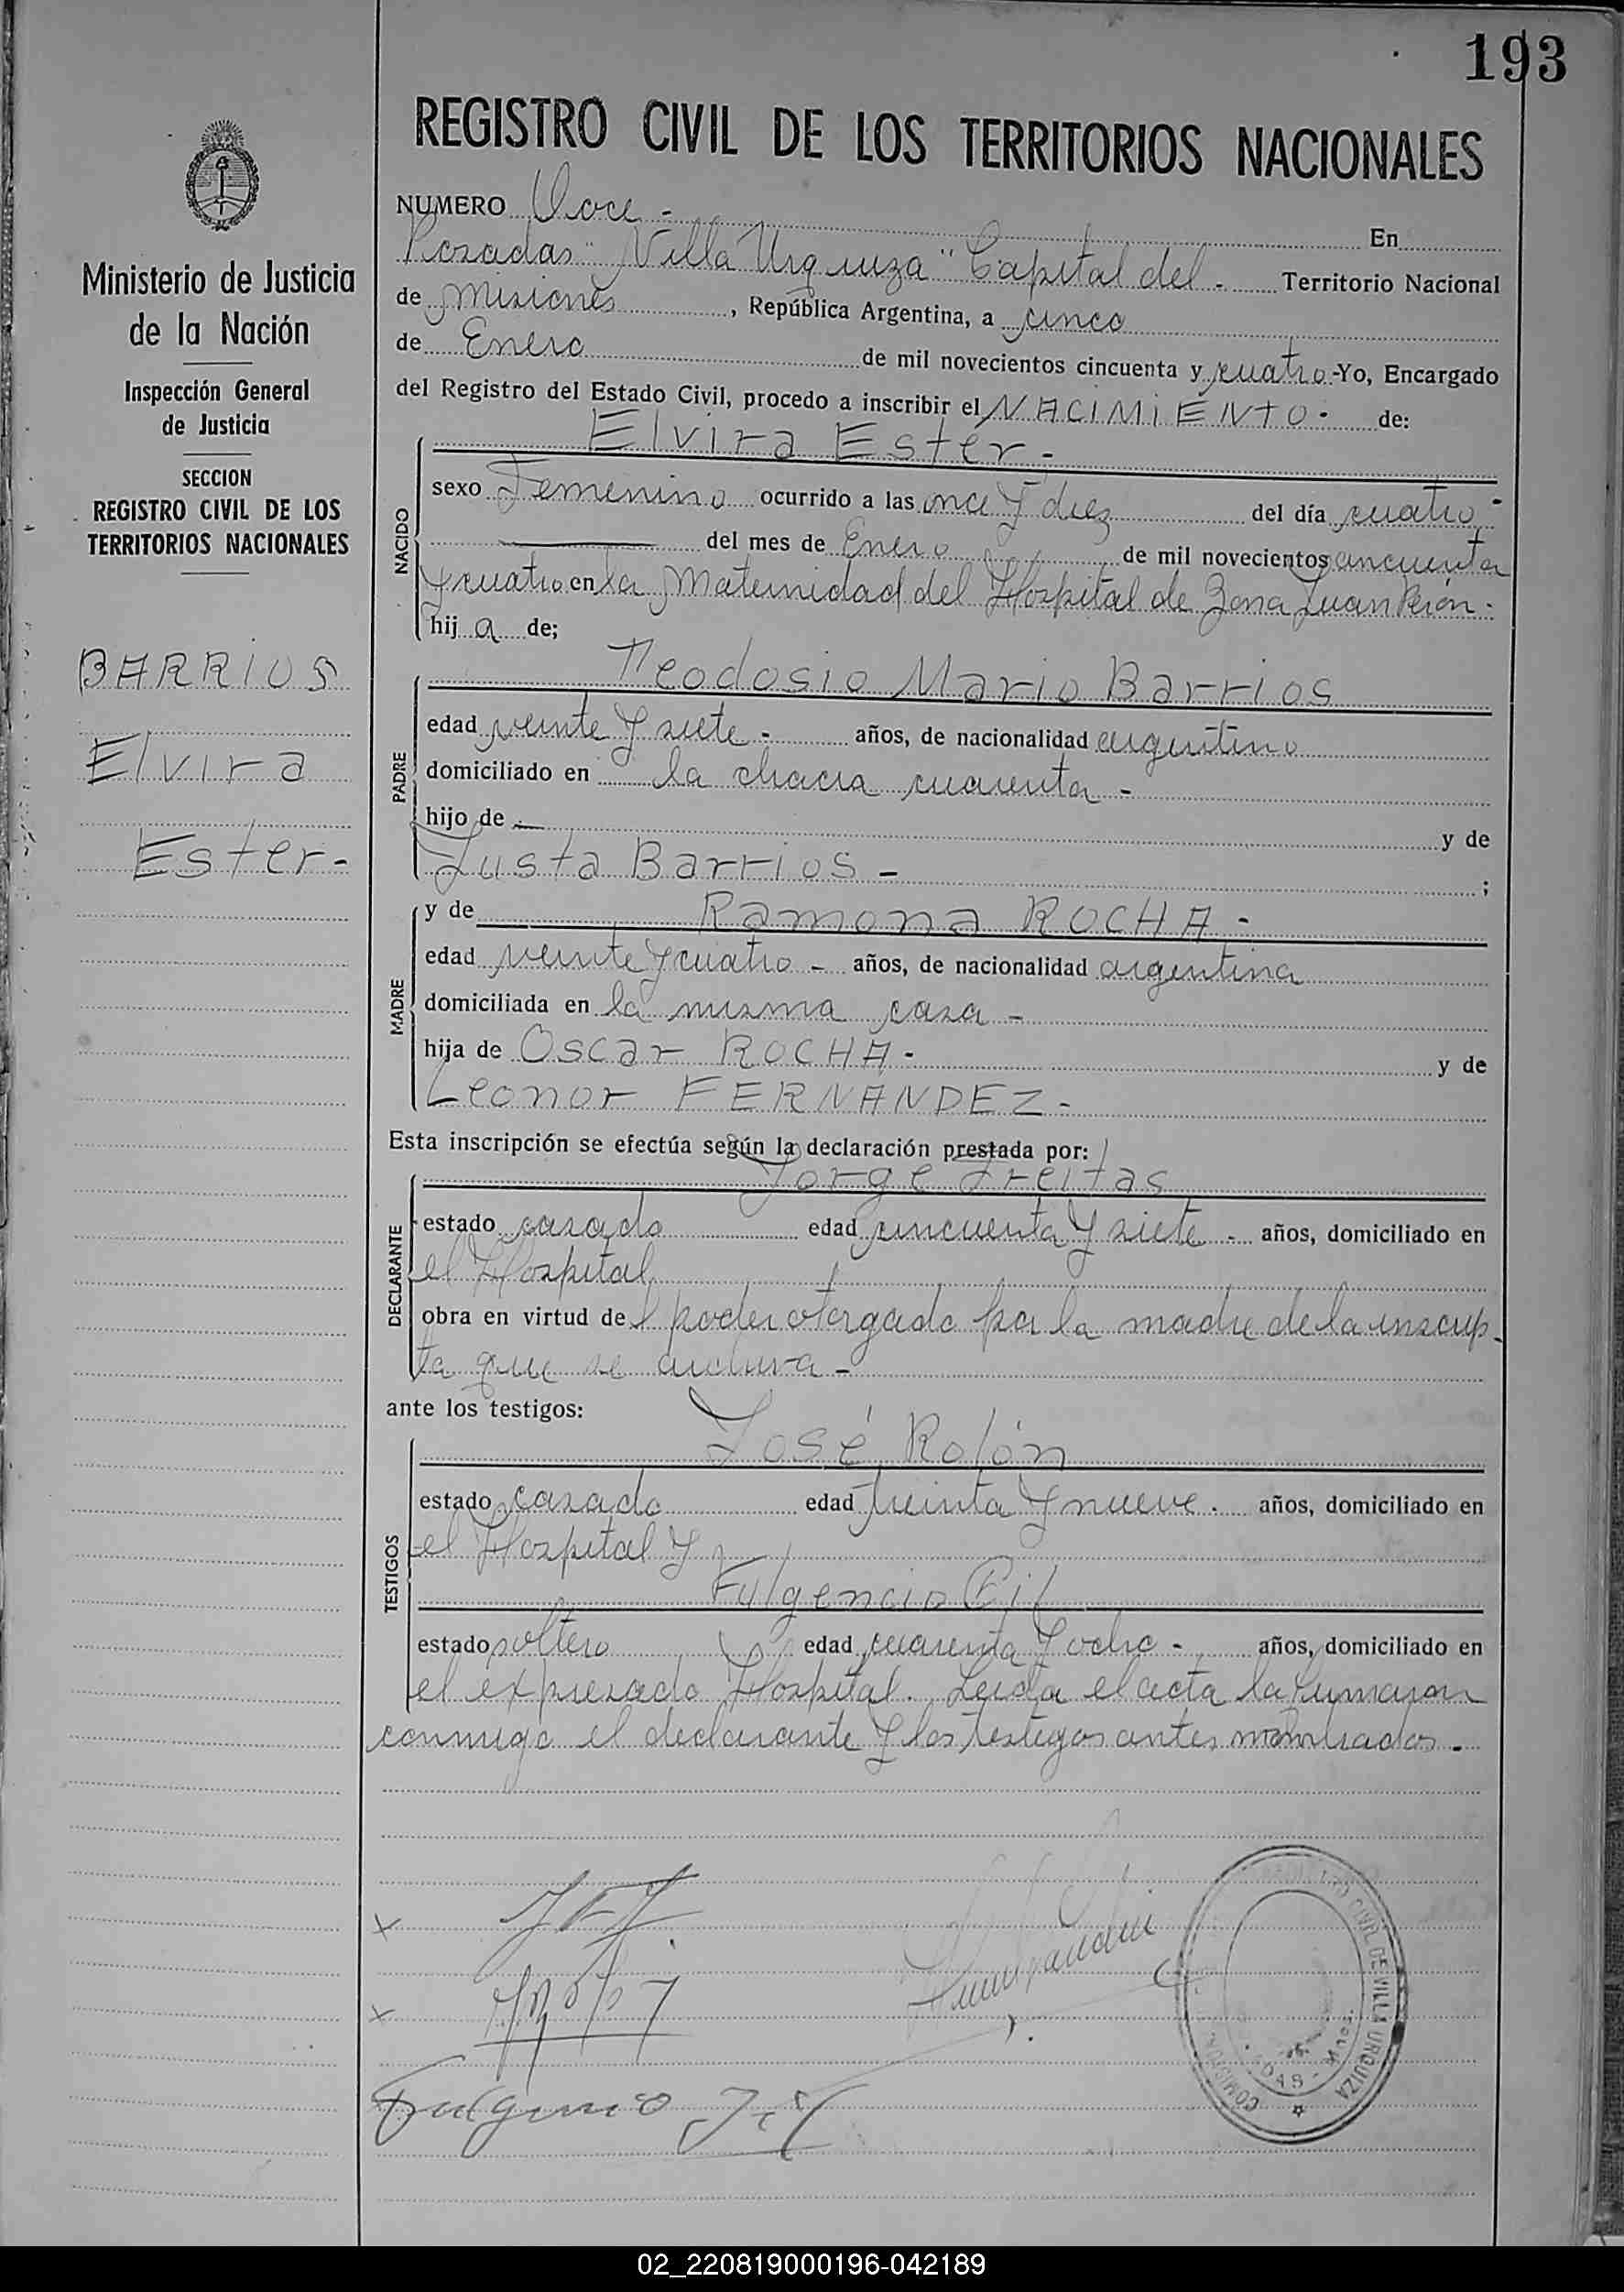 193
REGISTRO CIVIL DE LOS TERRITORIOS NACIONALES
Ministerio de Justicia
de la Nación
Inspección General
de Justicia
SECCION
REGISTRO CIVIL DE LOS
TERRITORIOS NACIONALES
BARRIOS
Elvira
Ester-
NUMERO Doce - En
Posadas "Villa Urquiza" Capital del - Territorio Nacional
de Misiones, República Argentina, a cinco
de Enero de mil novecientos cincuenta y cuatro-Yo, Encargado
del Registro del Estado Civil, procedo a inscribir el NACIMIENTO- de:
Elvira Ester-
NACIDO
sexo Femenino ocurrido a las once y diez del día cuatro-
del mes de Enero de mil novecientos cincuenta
y cuatro en la Maternidad del Hospital de Zona Juan Perón-
hij a de;
Teodosio Mario Barrios
PADRE
edad veinte y siete - años, de nacionalidad argentino
domiciliado en la chacra cuarenta -
hijo de - y de
Justa Barrios - ;
y de Ramona ROCHA -
MADRE
edad veinte y cuatro - años, de nacionalidad argentina
domiciliada en la misma casa -
hija de Oscar ROCHA - y de
Leonor FERNANDEZ -
Esta inscripción se efectúa según la declaración prestada por:
Jorge Freitas
DECLARANTE
estado casado edad cincuenta y siete - años, domiciliado en
el Hospital
obra en virtud del poder otorgado por la madre de la inscrip-
ta que se archiva -
ante los testigos:
José Rolón
TESTIGOS
estado casado edad treinta y nueve - años, domiciliado en
el Hospital y
Fulgencio Gil
estado soltero edad cuarenta y ocho - años, domiciliado en
el expresado Hospital. Leida el acta la firmaron
conmigo el declarante y los testigos antes nombrados -
x
x
Fulgencio Gil
REGISTRO CIVIL DE VILLA URQUIZA
02_220819000196-042189